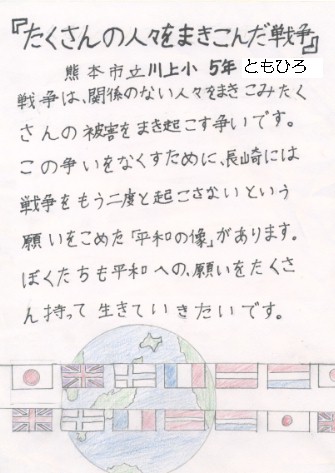 『たくさんの人々をまきこんだ戦争』
熊本市立川上小 5年 ともひろ
戦争は、関係のない人々をまきこみたく
さんの被害をまき起こす争いです。
この争いをなくすために、長崎には
戦争をもう二度と起こさないという
願いをこめた「平和の像」があります。
ぼくたちも平和への、願いをたくさ
ん持って生きていきたいです。